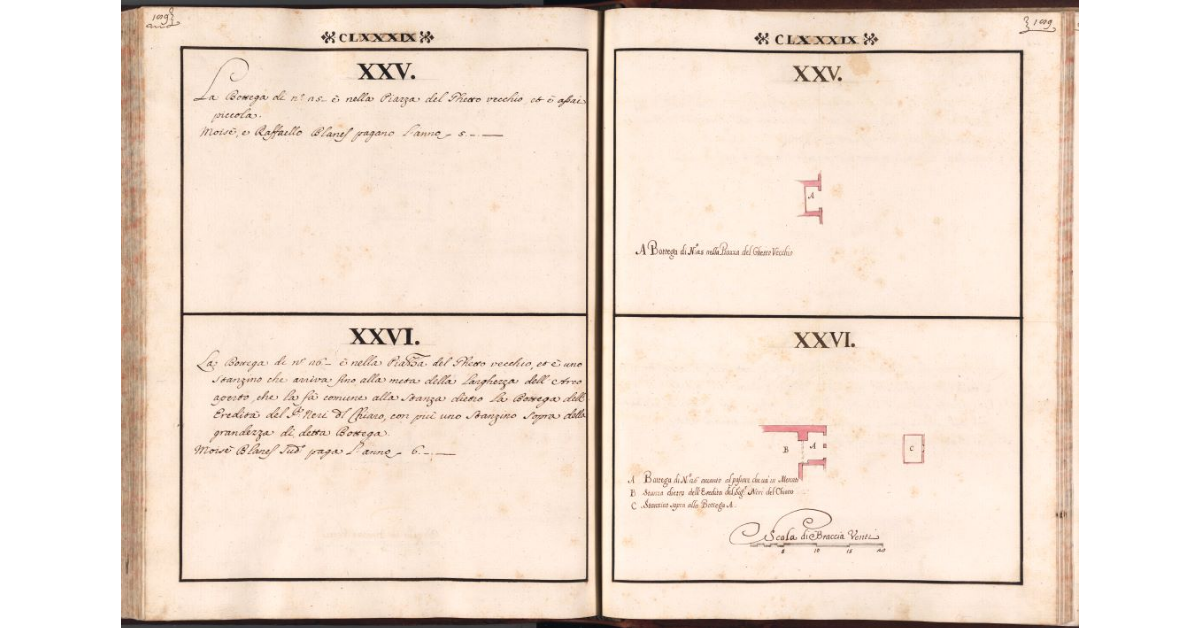 1019
CLXXXIX
XXV.
La Bottega di n.º 25 è nella Piazza del Ghetto vecchio, et è assai
piccola.
Moisè, e Raffaello Blanes pagano l'anno 5.-.—
XXVI.
La Bottega di n.º 26 è nella Piazza del Ghetto vecchio, et è uno
Stanzino che arriva fino alla metà della Larghezza dell'Arco
aperto, che la fà comune alla Stanza dietro la Bottega dell'
Eredità del Sig.r Neri del Chiaro, con più uno Stanzino sopra della
grandezza di detta Bottega.
Moisè Blanes Sud.º paga l'anno 6.-.—
1019
CLXXXIX
XXV.
A
A Bottega di N.º 25 nella Piazza del Ghetto Vecchio
XXVI.
B A C
A Bottega di N.º 26 accanto al che và in Mercato
B Stanza dietro dell'Eredità del Sig.r Neri del Chiaro
C Stanzino sopra alla Bottega A.
Scala di Braccia Venti
5 10 15 20